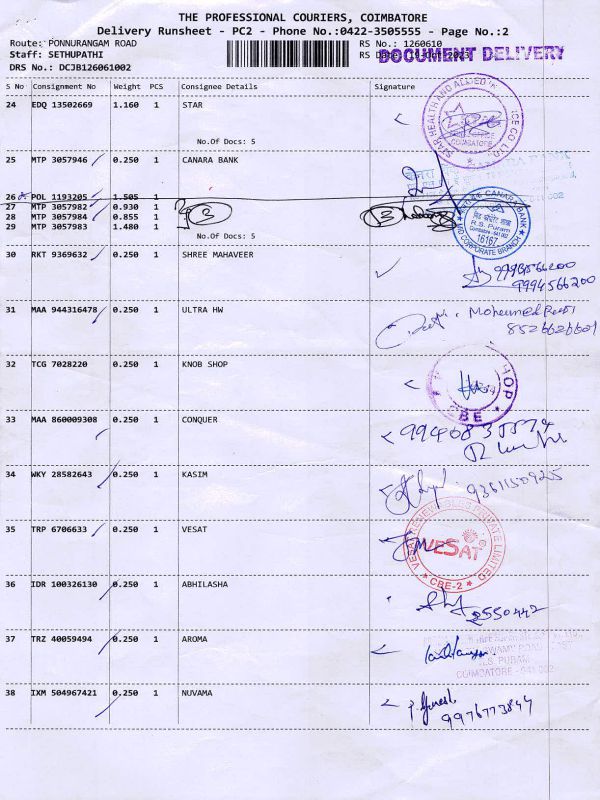 THE PROFESSIONAL COURIERS, COIMBATORE
Delivery Runsheet - PC2 - Phone No.:0422-3505555 - Page No.:2
Route: PONNURANGAM ROAD
RS No.: 1260610
Staff: SETHUPATHI
RS Date:
DOCUMENT DELIVERY
DRS No.: DCJB126061002
S No Consignment No Weight PCS Consignee Details Signature
24 EDQ 13502669 1.160 1 STAR
STAR HEALTH AND ALLIED CE CO LTD.
COIMBATORE
No.Of Docs: 5
25 MTP 3057946 0.250 1 CANARA BANK
26 POL 1193205 1.505 1
27 MTP 3057982 0.930 1
28 MTP 3057984 0.855 1
29 MTP 3057983 1.480 1
3
CANARA BANK
R.S. Puram
Coimbatore - 641 002
16167
CORPORATE BRANCH
No.Of Docs: 5
30 RKT 9369632 0.250 1 SHREE MAHAVEER
9994566200
31 MAA 944316478 0.250 1 ULTRA HW
32 TCG 7028220 0.250 1 KNOB SHOP
HOP
CBE
33 MAA 860009308 0.250 1 CONQUER
34 WKY 28582643 0.250 1 KASIM
9361150925
35 TRP 6706633 0.250 1 VESAT
PRIVATE LIMITED
VESAT
CBE-2
36 IDR 100326130 0.250 1 ABHILASHA
2550442
37 TRZ 40059494 0.250 1 AROMA
R.S. PURAM
COIMBATORE - 641 002
38 IXM 504967421 0.250 1 NUVAMA
9976773844